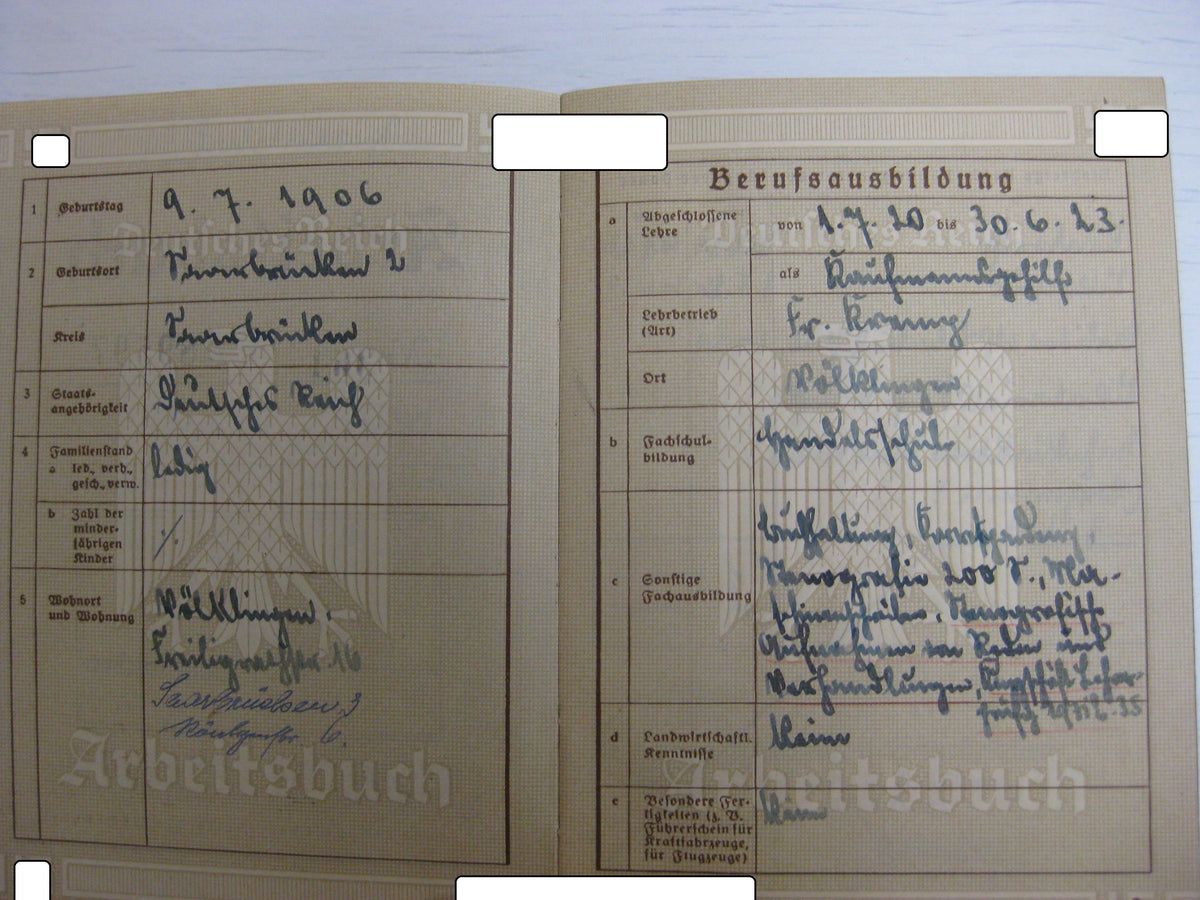 1 Geburtstag 9. 7. 1906
Deutsches Reich
2 Geburtsort Saarbrücken 2
Kreis Saarbrücken
3 Staats-
angehörigkeit Deutsches Reich
4 Familienstand
a led., verh.,
gesch., verw. ledig
b Zahl der
minder-
jährigen
Kinder ./.
5 Wohnort
und Wohnung
Völklingen.
Freiligrathstr. 16
Saarbrücken 3
6.
Arbeitsbuch
Berufsausbildung
a Abgeschlossene
Lehre
von 1.7.20 bis 30.6.23.
Deutsches Reich
als Kaufmannsgehilfe
Lehrbetrieb
(Art) Fr. Kramp
Ort Völklingen
b Fachschul-
bildung Handelsschule
c Sonstige
Fachausbildung
Buchhaltung,
Stenografie 200 S., Ma-
schinenschreiben, Stenografische
Aufnahmen von Reden und
Verhandlungen,
d Landwirtschaftl.
Kenntnisse Keine
e Besondere Fer-
tigkeiten (z. B.
Führerschein für
Kraftfahrzeuge,
für Flugzeuge) Keine
Arbeitsbuch